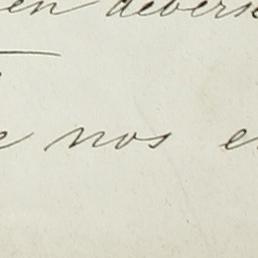 en divers
e nos e